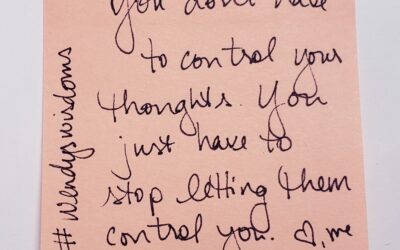 You don't have
to control your
thoughts. You
just have to
stop letting them
control you. ♡, me
#wendyswisdoms